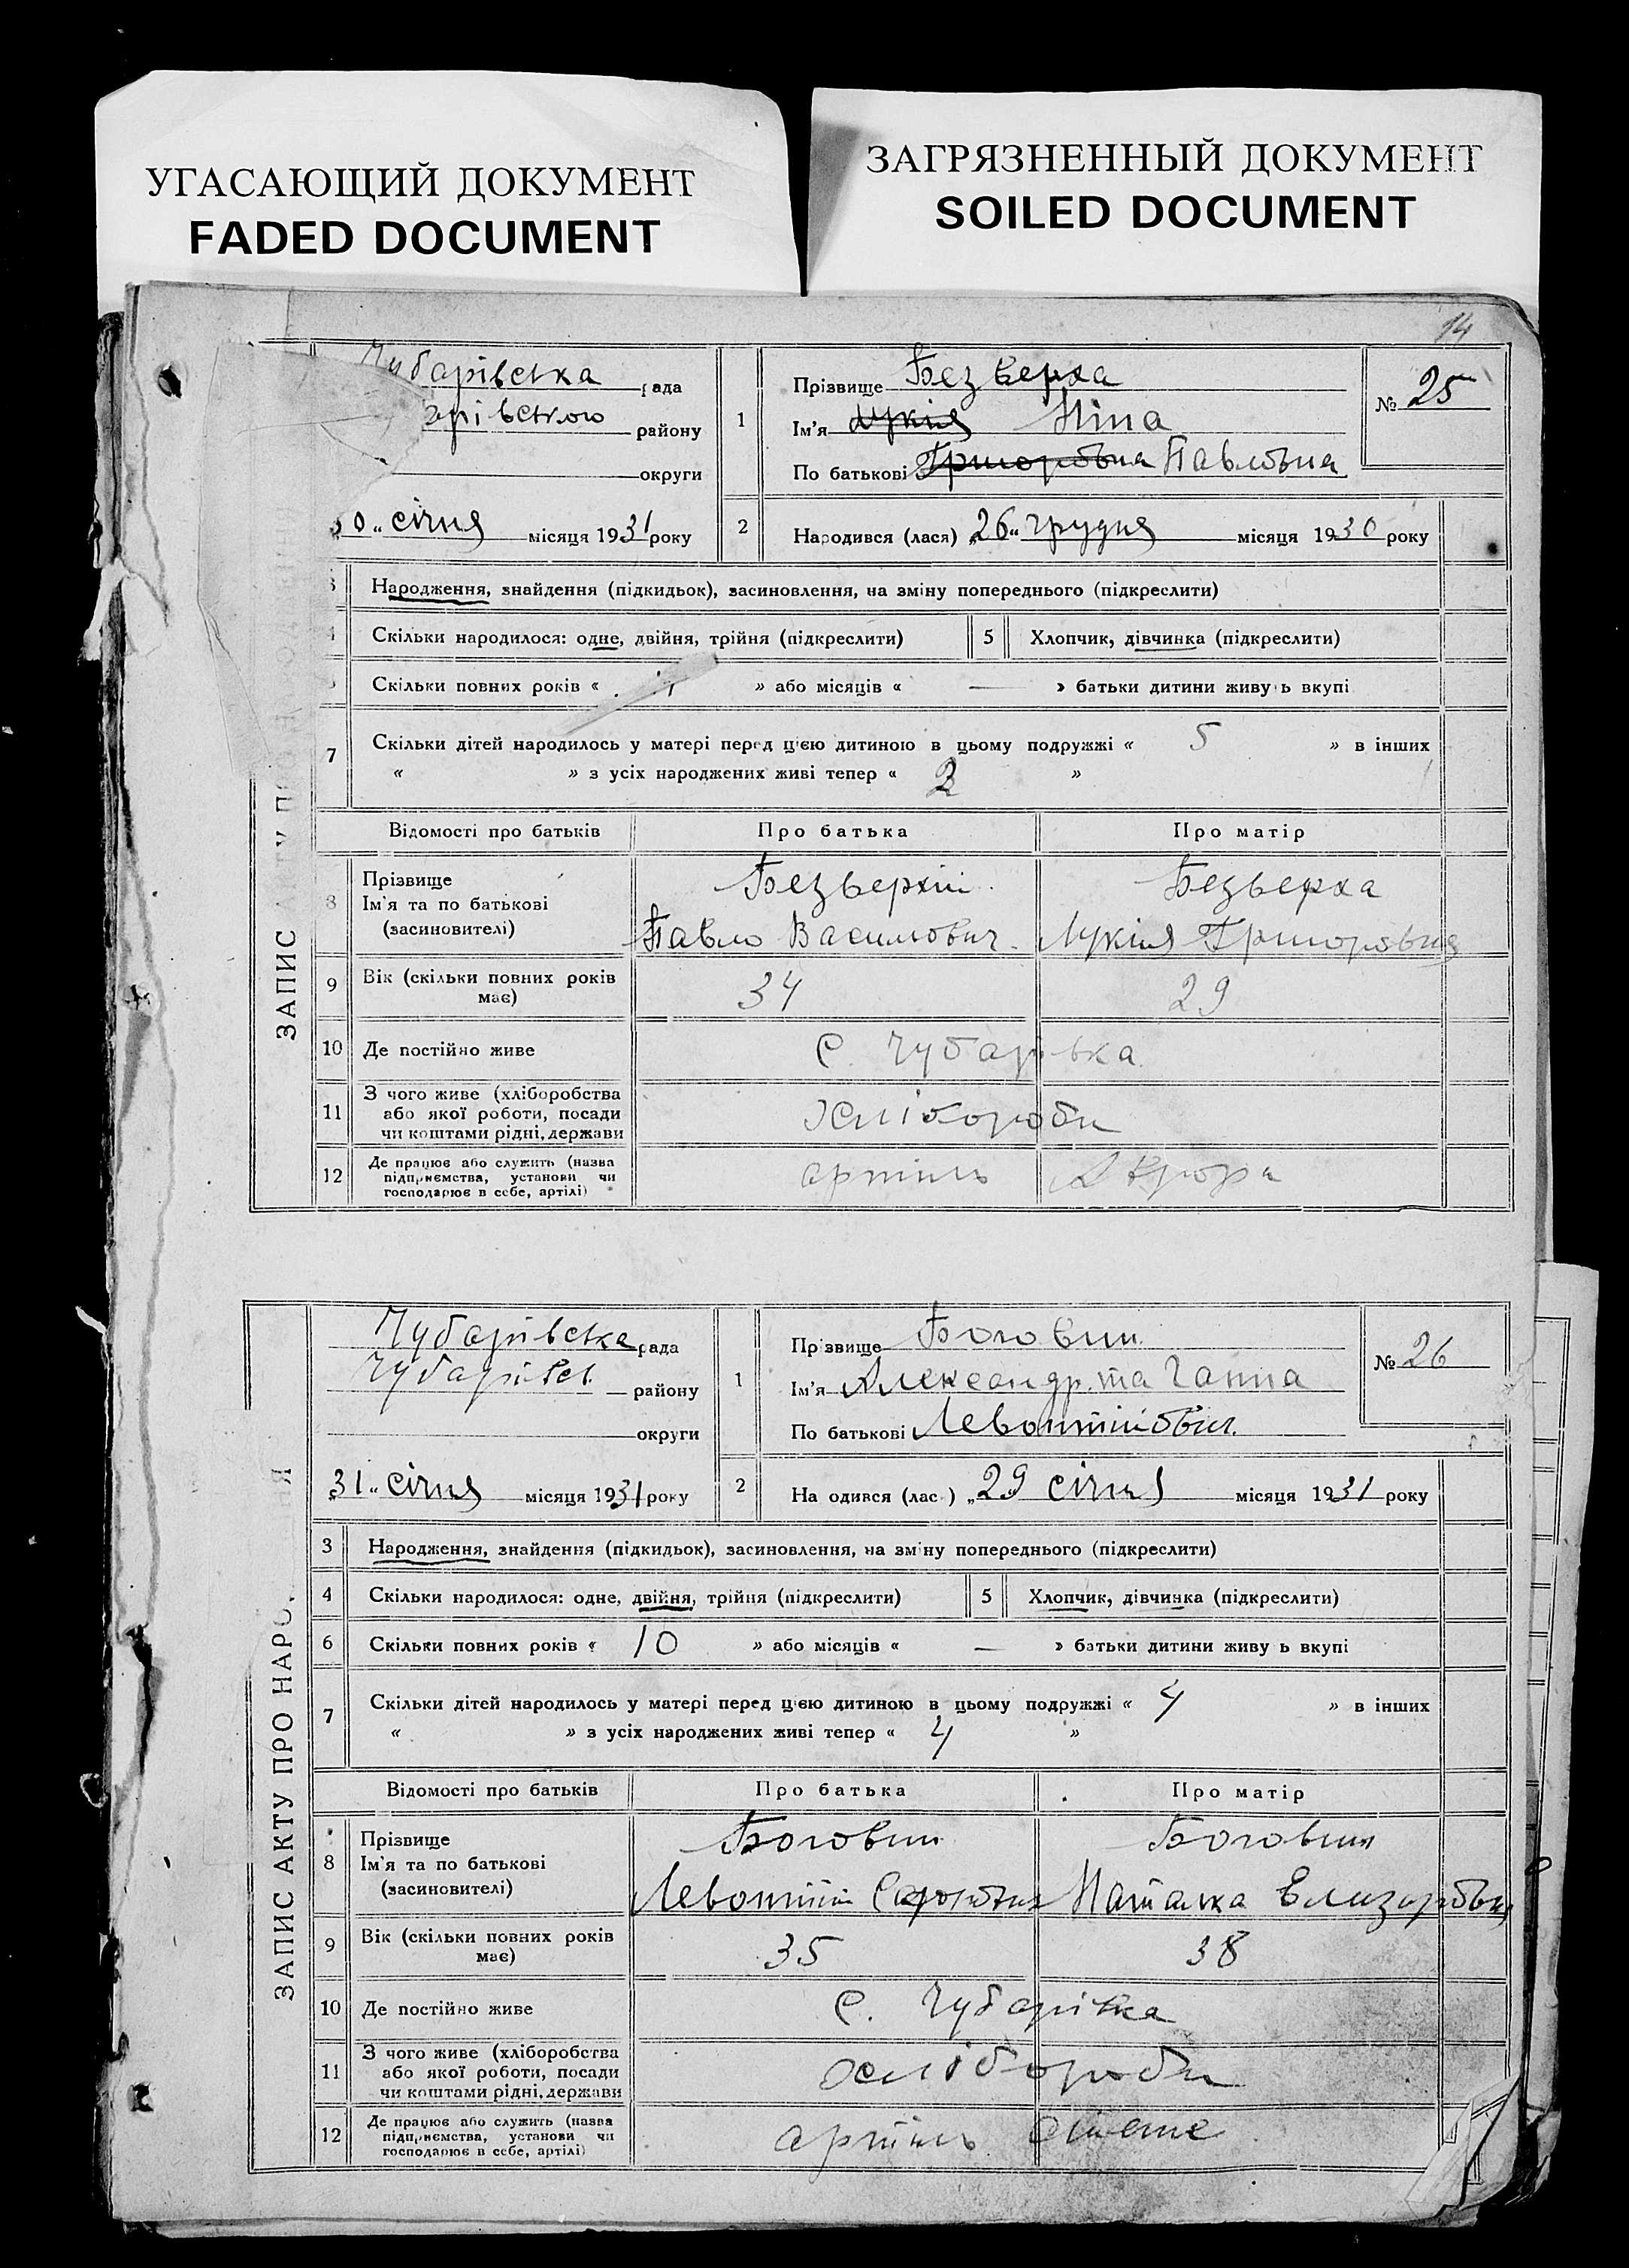 УГАСАЮЩИЙ ДОКУМЕНТ
FADED DOCUMENT
ЗАГРЯЗНЕННЫЙ ДОКУМЕНТ
SOILED DOCUMENT
14
Чубарівська рада
арівського району
округи
30 „ січня місяця 1931 року
1
Прізвище Безверха
Ім'я Лукія Ніна
По батькові Григорівна Павлівна
№ 25
2
Народився (лася) „26“ грудня місяця 1930 року
Народження, знайдення (підкидьок), засиновлення, на зміну попереднього (підкреслити)
Скільки народилося: одне, двійня, трійня (підкреслити)
5 Хлопчик, дівчинка (підкреслити)
Скільки повних років « » або місяців « — » батьки дитини живу ь вкупі
7 Скільки дітей народилось у матері перед цією дитиною в цьому подружжі « 5 » в інших
« » з усіх народжених живі тепер « 2 »
Відомості про батьків
Про батька
Про матір
8 Прізвище
Ім'я та по батькові
(засиновителі)
Безверхий
Павло Василович
Безверха
Лукія Григоровна
9 Вік (скільки повних років має)
34
29
10 Де постійно живе
с. Чубарівка
11 З чого живе (хліборобства
або якої роботи, посади
чи коштами рідні, держави
хлібороби
12 Де працює або служить (назва
підприємства, установи чи
господарює в себе, артілі)
артіль
ЗАПИС АКТУ ПРО
Чубарівська рада
Чубарівськ. району
округи
„31„ січня місяця 1931 року
1
Пр звище Боговин
Ім'я Александр та Ганна
По батькові Левонтійович.
№ 26
2
На одився (лас ) „29 січня місяця 1931 року
3 Народження, знайдення (підкидьок), засиновлення, на зміну попереднього (підкреслити)
4 Скільки народилося: одне, двійня, трійня (підкреслити)
5 Хлопчик, дівчинка (підкреслити)
6 Скільки повних років « 10 » або місяців « — » батьки дитини живу ь вкупі
7 Скільки дітей народилось у матері перед цією дитиною в цьому подружжі « 4 » в інших
« » з усіх народжених живі тепер « 4 »
Відомості про батьків
Про батька
Про матір
8 Прізвище
Ім'я та по батькові
(засиновителі)
Боговин
Левонтій
Боговин
Наталка Елизарівна
9 Вік (скільки повних років має)
35
38
10 Де постійно живе
с. Чубарівка
11 З чого живе (хліборобства
або якої роботи, посади
чи коштами рідні, держави
хлібороби
12 Де працює або служить (назва
підприємства, установи чи
господарює в себе, артілі)
артіль
ЗАПИС АКТУ ПРО НАРО